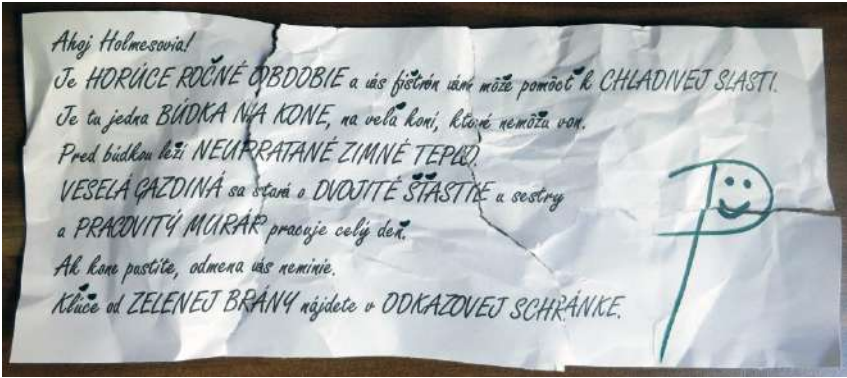 Ahoj Holmesovia!
Je HORÚCE ROČNÉ OBDOBIE a váš fištrón vám môže pomôcť k CHLADIVEJ SLASTI.
Je tu jedna BÚDKA NA KONE, na veľa koní, ktoré nemôžu von.
Pred búdkou leží NEUPRATANÉ ZIMNÉ TEPLO.
VESELÁ GAZDINÁ sa stará o DVOJITÉ ŠŤASTIE u sestry
a PRACOVITÝ MURÁR pracuje celý deň.
Ak kone pustíte, odmena vás neminie.
Kľúče od ZELENEJ BRÁNY nájdete v ODKAZOVEJ SCHRÁNKE.
P